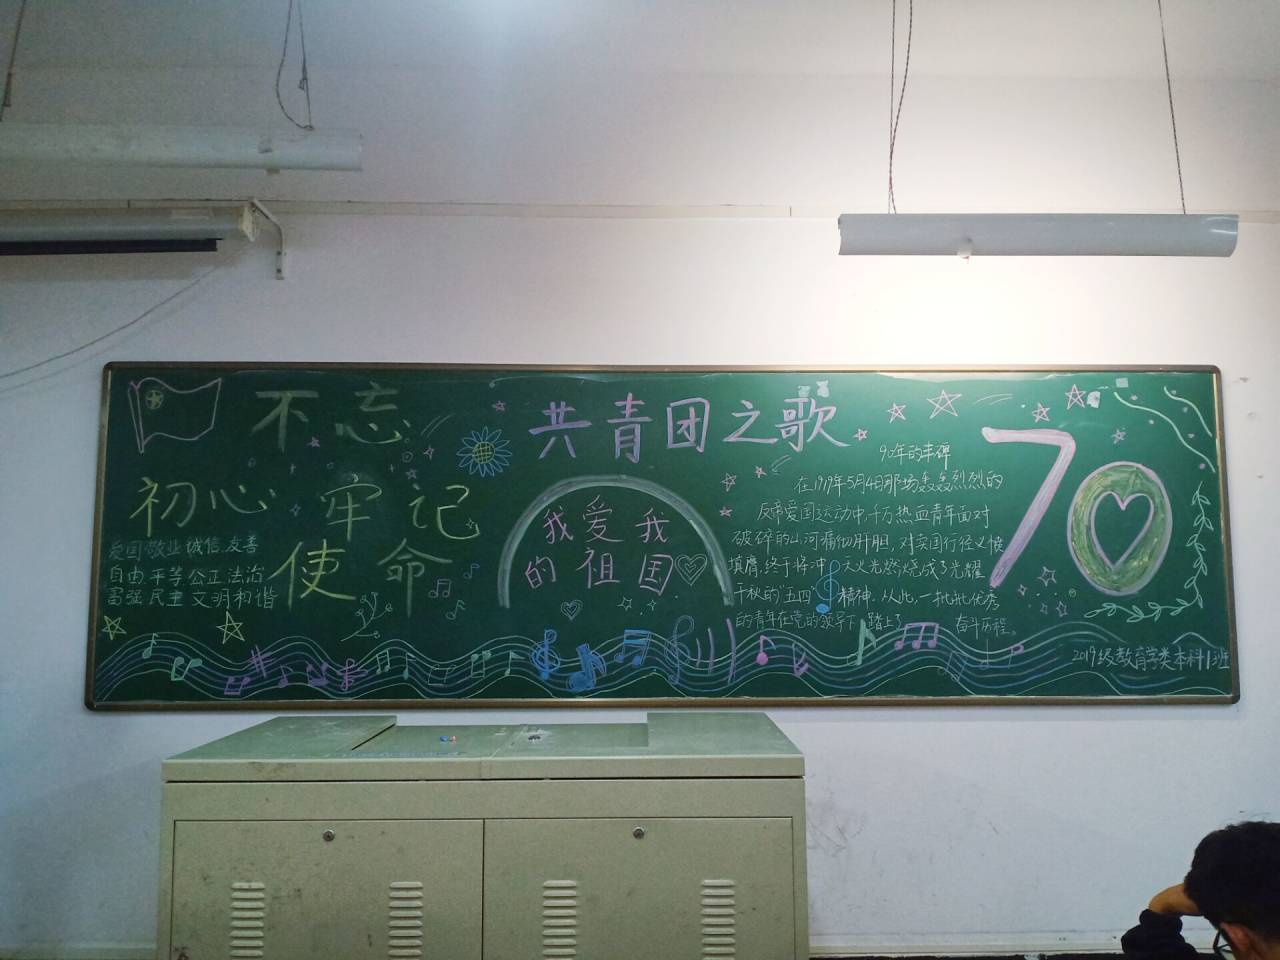 不忘
初心 牢记
使命
爱国 敬业 诚信 友善
自由 平等 公正 法治
富强 民主 文明 和谐
共青团之歌
我爱我
的祖国
90年的丰碑
在1919年5月4日那场轰轰烈烈的
反帝爱国运动中,千万热血青年面对
破碎的山河痛彻肝胆,对卖国行径义愤
填膺,终于将冲天火光燃烧成了光耀
千秋的"五四"精神.从此,一批批优秀
的青年在党的领导下踏上了 奋斗历程。
70
2019级教育学类本科1班